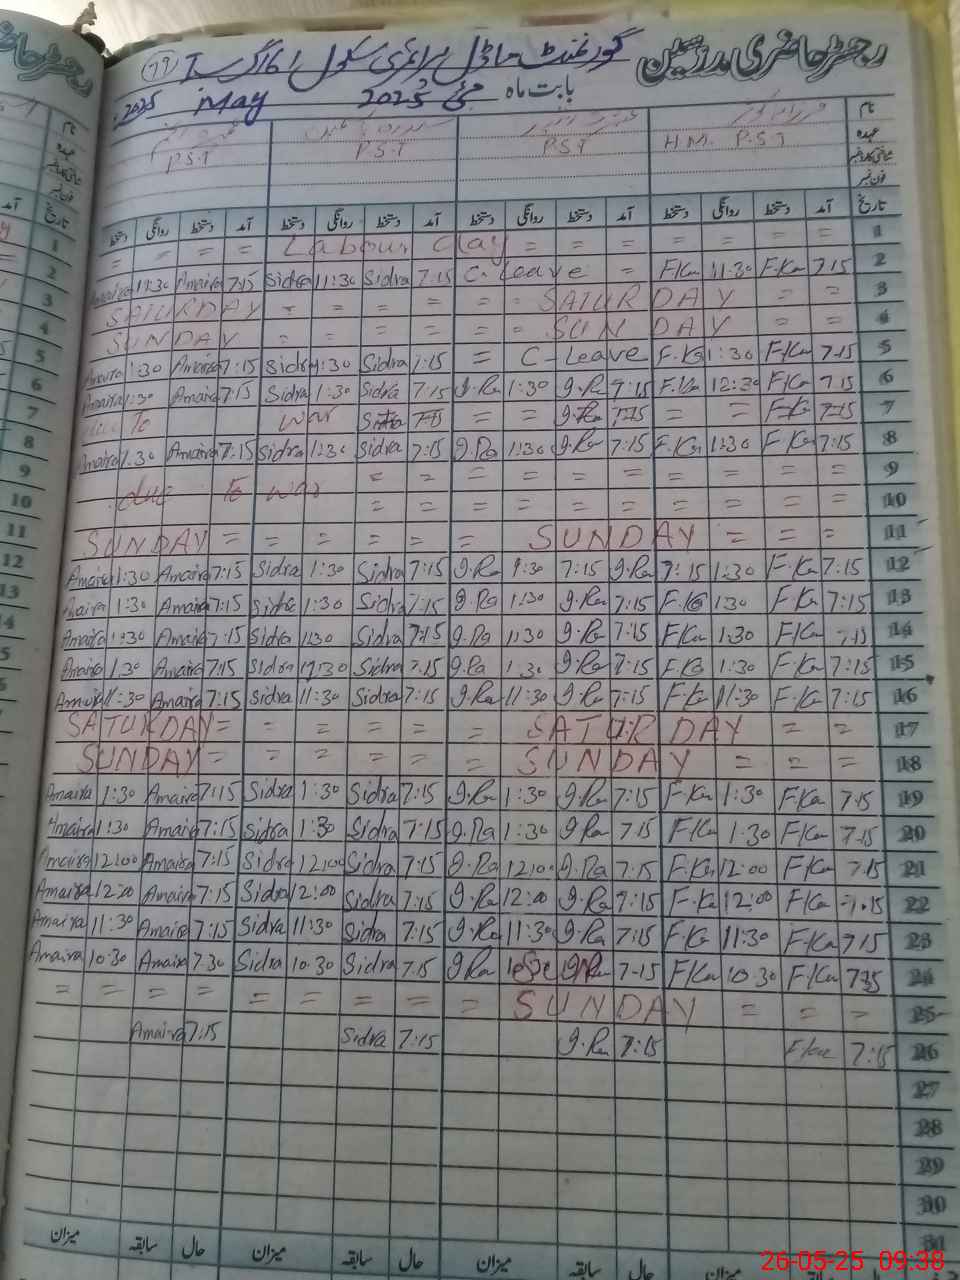 رجسٹر حاضری مدرسین گورنمنٹ ماڈل پرائمری سکول
بابت ماہ مئی 2025 May 2025
نام
عہدہ H.M. P.S.T P.S.T P.S.T P.S.T
شناختی کارڈ نمبر
فون نمبر
تاریخ آمد دستخط روانگی دستخط آمد دستخط روانگی دستخط آمد دستخط روانگی دستخط آمد دستخط روانگی دستخط
= = = = Labour Day = = = = = = 1
Amaira 11:30 Amaira 7:15 Sidra 11:30 Sidra 7:15 C. Leave = F.Ka 11:30 F.Ka 7:15 2
SATURDAY = = = = = SATURDAY = = 3
SUNDAY = = = = = SUNDAY = = 4
Amaira 1:30 Amaira 7:15 Sidra 1:30 Sidra 7:15 = C-Leave F.Ka 1:30 F.Ka 7:15 5
Amaira 1:30 Amaira 7:15 Sidra 1:30 Sidra 7:15 g.Ra 1:30 g.Ra 7:15 F.Ka 12:30 F.Ka 7:15 6
due To war Sidra 7:15 = = g.Ra 7:15 = = F.Ka 7:15 7
Amaira 1:30 Amaira 7:15 Sidra 1:30 Sidra 7:15 g.Ra 1:30 g.Ra 7:15 F.Ka 1:30 F.Ka 7:15 8
= = = = = = = = = = 9
due To war = = = = = = = = = = 10
SUNDAY = = = = = = SUNDAY = = = 11
Amaira 1:30 Amaira 7:15 Sidra 1:30 Sidra 7:15 g.Ra 1:30 7:15 g.Ra 7:15 1:30 F.Ka 7:15 12
Amaira 1:30 Amaira 7:15 Sidra 1:30 Sidra 7:15 g.Ra 1:30 g.Ra 7:15 F.Ka 1:30 F.Ka 7:15 13
Amaira 1:30 Amaira 7:15 Sidra 1:30 Sidra 7:15 g.Ra 1:30 g.Ra 7:15 F.Ka 1:30 F.Ka 7:15 14
Amaira 1:30 Amaira 7:15 Sidra 1:30 Sidra 7:15 g.Ra 1:30 g.Ra 7:15 F.Ka 1:30 F.Ka 7:15 15
Amaira 11:30 Amaira 7:15 Sidra 11:30 Sidra 7:15 g.Ra 11:30 g.Ra 7:15 F.Ka 11:30 F.Ka 7:15 16
SATURDAY = = = = = = SATURDAY = = 17
SUNDAY = = = = = = SUNDAY = = = 18
Amaira 1:30 Amaira 7:15 Sidra 1:30 Sidra 7:15 g.Ra 1:30 g.Ra 7:15 F.Ka 1:30 F.Ka 7:15 19
Amaira 1:30 Amaira 7:15 Sidra 1:30 Sidra 7:15 g.Ra 1:30 g.Ra 7:15 F.Ka 1:30 F.Ka 7:15 20
Amaira 12:00 Amaira 7:15 Sidra 12:00 Sidra 7:15 g.Ra 12:00 g.Ra 7:15 F.Ka 12:00 F.Ka 7:15 21
Amaira 12:00 Amaira 7:15 Sidra 12:00 Sidra 7:15 g.Ra 12:00 g.Ra 7:15 F.Ka 12:00 F.Ka 7:15 22
Amaira 11:30 Amaira 7:15 Sidra 11:30 Sidra 7:15 g.Ra 11:30 g.Ra 7:15 F.Ka 11:30 F.Ka 7:15 23
Amaira 10:30 Amaira 7:30 Sidra 10:30 Sidra 7:15 g.Ra g.Ra 7:15 F.Ka 10:30 F.Ka 24
= = = = = = = = = SUNDAY = = = 25
Amaira 7:15 Sidra 7:15 g.Ra 7:15 F.Ka 7:15 26
27
28
29
30
31
حال سابقہ میزان حال سابقہ میزان حال سابقہ میزان
26-05-25 09:38